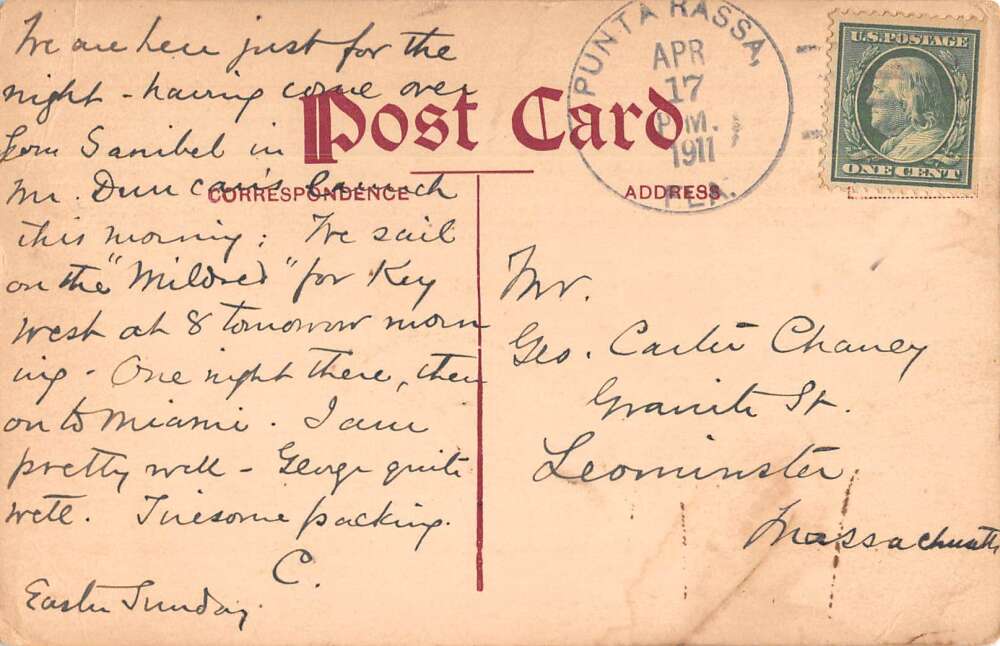 We are here just for the
night - having come over
from Sanibel in
Mr. Duncan's Launch
this morning; We sail
on the "Mildred" for Key
West at 8 tomorrow morn
ing - One night there, then
on to Miami. I am
pretty well - George quite
well. Tiresome packing.
C.
Easter Sunday.
Post Card
CORRESPONDENCE
ADDRESS
PUNTA RASSA,
APR
17
P.M.
1911
FLA.
U.S. POSTAGE
ONE CENT
Mr.
Geo. Carter Chaney
Granite St.
Leominster
Massachusetts